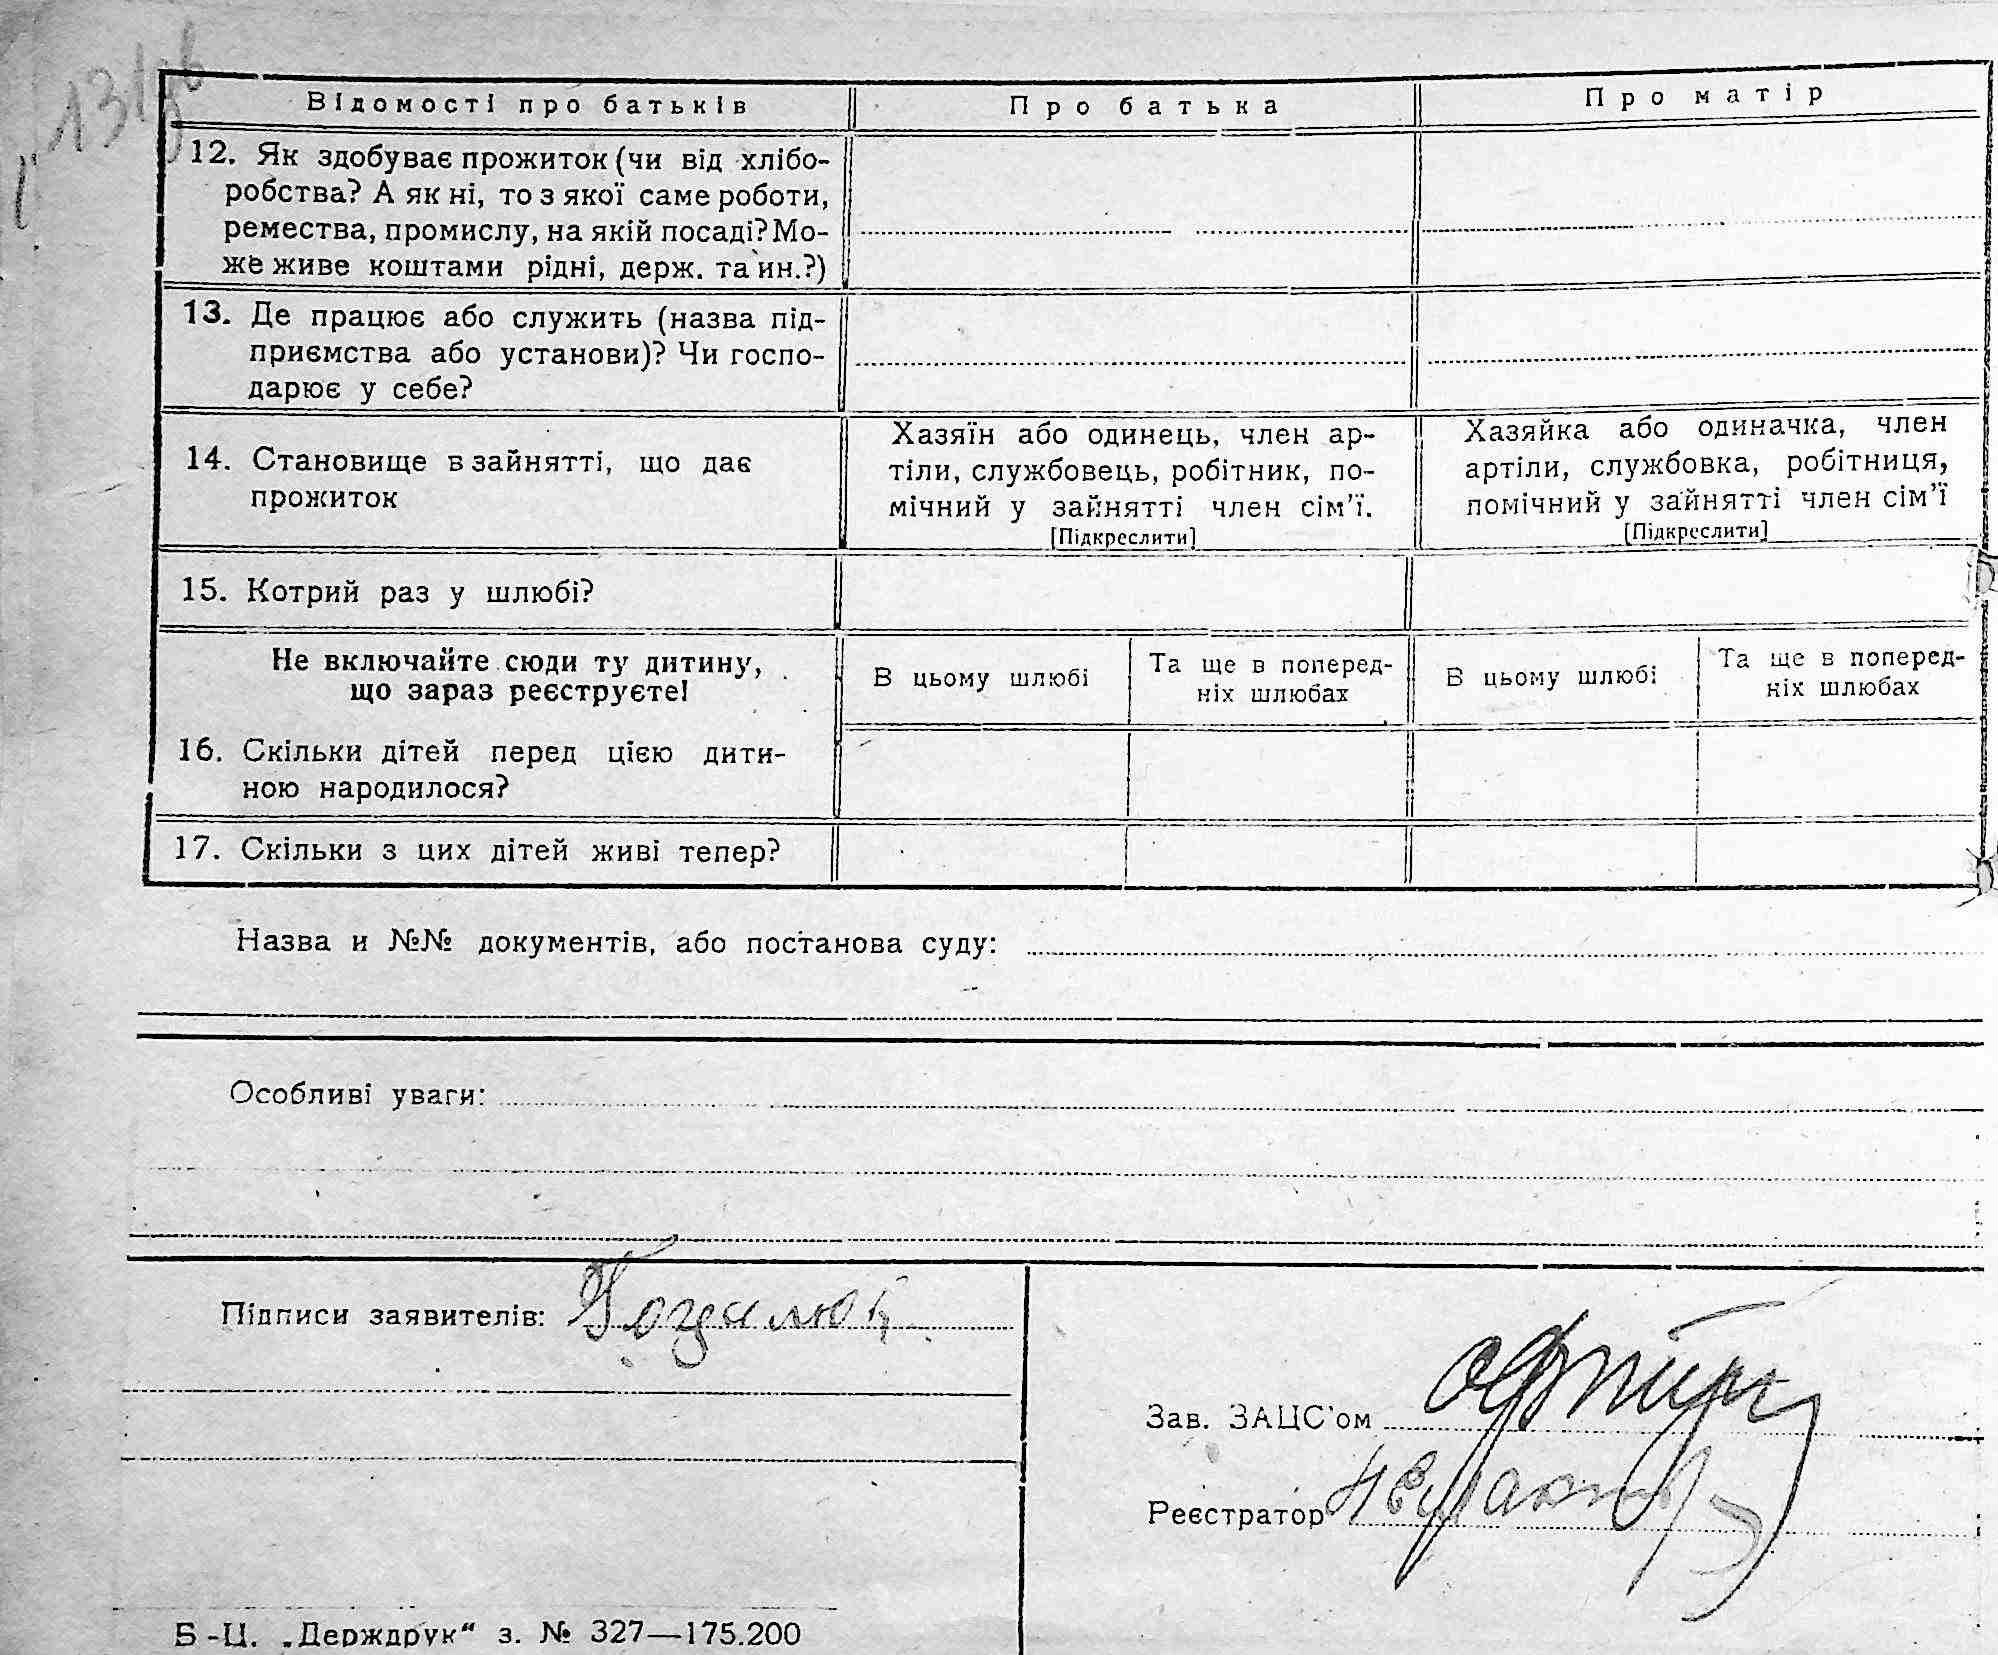 Відомості про батьків Про батька Про матір
12. Як здобуває прожиток (чи від хлібо-
робства? А як ні, то з якої саме роботи,
ремества, промислу, на якій посаді? Мо-
же живе коштами рідні, держ. та ин.?)
13. Де працює або служить (назва під-
приємства або установи)? Чи госпо-
дарює у себе?
14. Становище в зайнятті, що дає
прожиток
Хазяїн або одинець, член ар-
тіли, службовець, робітник, по-
мічний у зайнятті член сім'ї.
[Підкреслити]
Хазяйка або одиначка, член
артіли, службовка, робітниця,
помічний у зайнятті член сім'ї
[Підкреслити]
15. Котрий раз у шлюбі?
Не включайте сюди ту дитину,
що зараз реєструєте!
В цьому шлюбі
Та ще в поперед-
ніх шлюбах
В цьому шлюбі
Та ще в поперед-
ніх шлюбах
16. Скільки дітей перед цією дити-
ною народилося?
17. Скільки з цих дітей живі тепер?
Назва и №№ документів, або постанова суду:
Особливі уваги:
Підписи заявителів:
Зав. ЗАЦС'ом
Реєстратор
Б-Ц. „Держдрук“ з. № 327—175.200